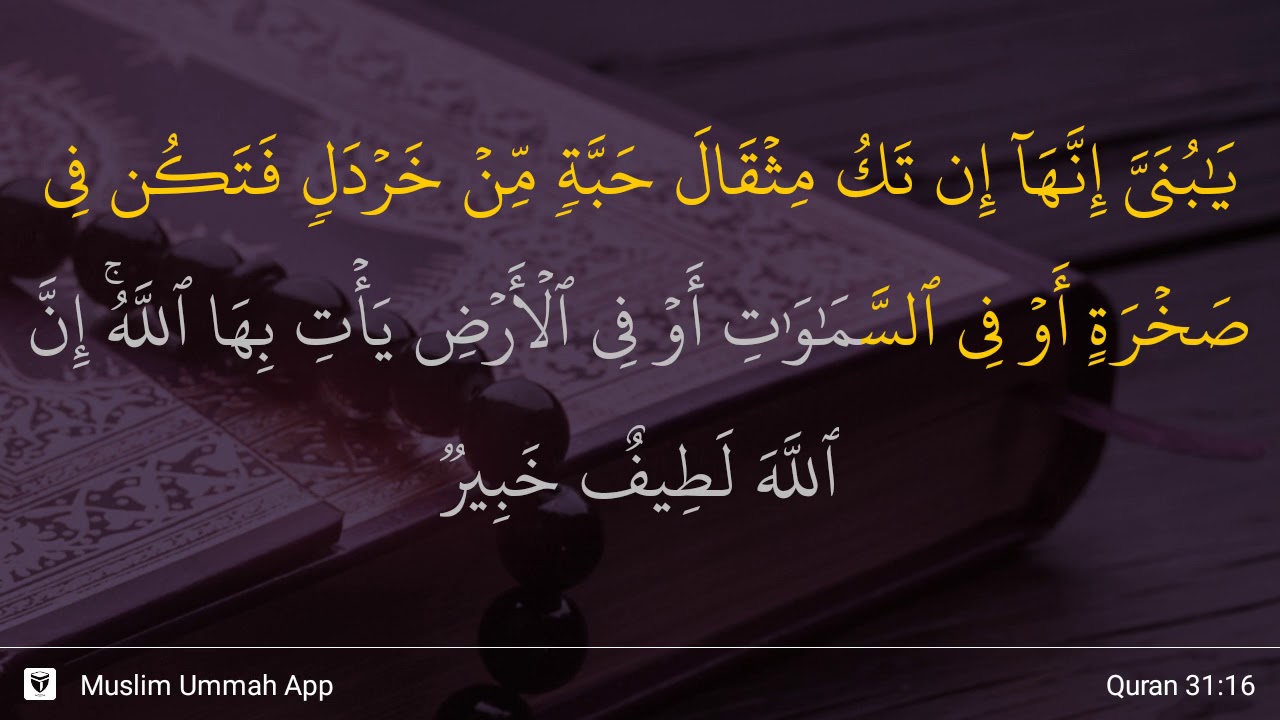 يَـٰبُنَىَّ إِنَّهَآ إِن تَكُ مِثْقَالَ حَبَّةٍ مِّنْ خَرْدَلٍ فَتَكُن فِى
صَخْرَةٍ أَوْ فِى ٱلسَّمَـٰوَٰتِ أَوْ فِى ٱلْأَرْضِ يَأْتِ بِهَا ٱللَّهُ ۚ إِنَّ
ٱللَّهَ لَطِيفٌ خَبِيرٌ
Muslim Ummah App
Quran 31:16